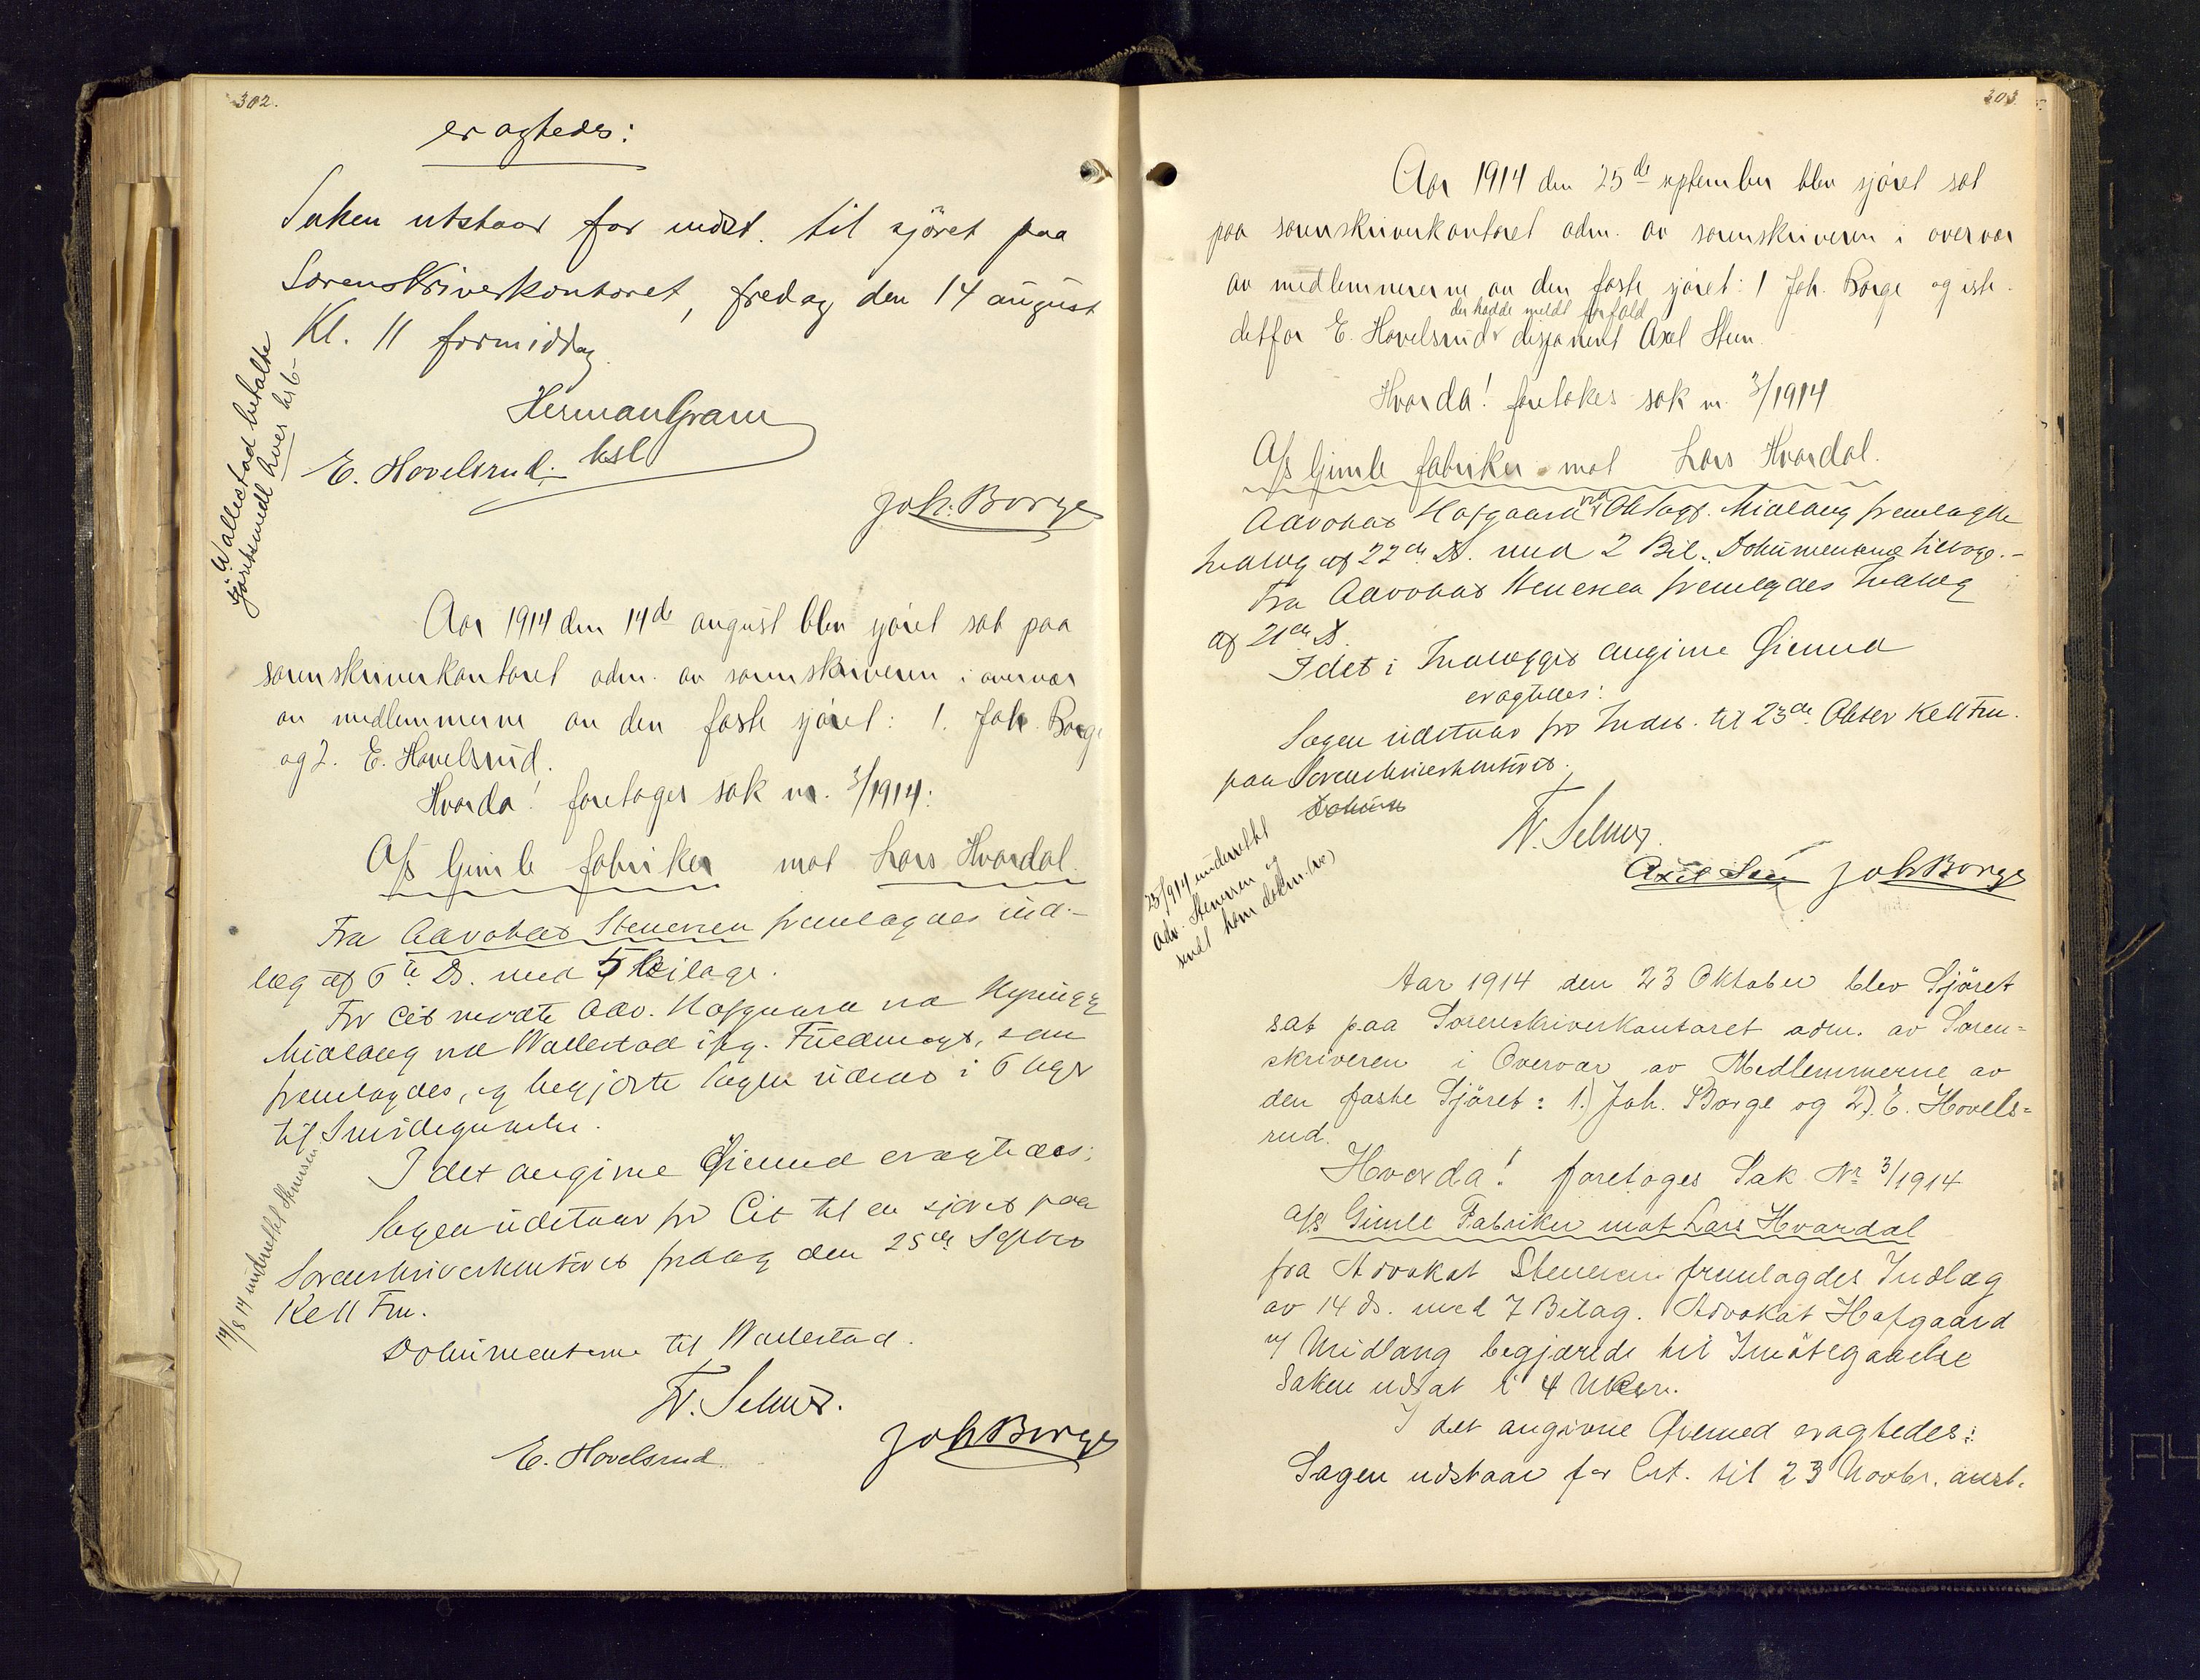 302.
eragtedes:
Saken utstaar for indst. til sjöret paa
Sorenskriverkontoret, fredag den 14 august
Kl. 11 formiddag
Herman Gram
kst
E. Hovelsrud.
Joh. Borge
Wallestad betalte
sjöretsmedl hver kr 6-
Aar 1914 den 14de august blev sjöret sat paa
sorenskriverkontoret adm. av sorenskriveren i overvær
av medlemmerne av den faste sjöret: 1. Joh. Borge
og 2. E. Hovelsrud.
Hvorda! foretoges sak nr. 3/1914:
A/s Gimle fabriker mot Lars Hvardal.
Fra Advokat Stenersen fremlagdes ind-
læg af 6te ds. med 5 bilage.
For Cit mødte Adv. Hofgaard
Midlang ved Wallestad ifg. Fuldmagt, som
fremlagdes, og begjærte Sagen udsat i 6 uger
til Imødegaaelse.
I det angivne Øiemed eragtedes:
Sagen udstaar for Cit til en sjøret paa
Sorenskriverkontoret fredag den 25de Septbr
Kl 11 Fm.
Dokumenterne til Wallestad.
Fr. Selmer.
E. Hovelsrud
Joh Borge
14/8 14 underrettet Stenersen
303
Aar 1914 den 25de september blev sjöret sat
paa sorenskriverkontoret adm. av sorenskriveren i overvær
av medlemmererne av den faste sjöret: 1 Joh. Borge og iste-
der hadde meldt forfald
detfor E. Hovelsrud disponent Axel Steen.
Hvorda! foretokes sak nr. 3/1914
A/s Gimle fabriker mot Lars Hvardal.
Advokat Hofgaard ved Midlang fremlagde
Indlæg af 22de ds. med 2 Bil. Dokumenterne tilbage.-
Fra Advokat Stenersen fremlagdes Indlæg
af 21de ds.
I det i Indlægget angivne Øiemed
eragtedes:
Sagen udstaar for Indst. til 23de Oktbr Kl 11 Fm.
paa Sorenskriverkontoret.
Fr. Selmer.
Axel Steen Joh Borge
25/9 14 underrettet
adv. Stenersen og
sendt ham dokm.
Aar 1914 den 23 Oktober blev Sjöret
sat paa Sorenskriverkontoret adm. av Soren-
skriveren i Overvær av Medlemmerne av
den faste Sjöret: 1.) Joh. Borge og 2). E. Hovels-
rud.
Hvorda! foretoges Sak Nr 3/1914
A/s Gimle Fabriker mot Lars Hvardal
fra Advokat Stenersen fremlagdes Indlæg
av 14 ds. med 7 Bilag. Advokat Hofgaard
v/ Midlang begjærede til Imötegaaelse
Saken udsat i 4 Uker.
I det angivne Øiemed eragtedes:
Sagen udstaar for Cit. til 23 Novbr. anst.